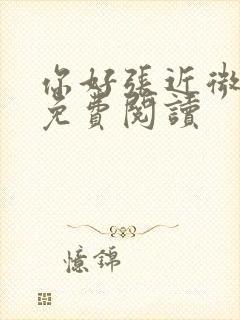 你好張近微
免費閱讀
憶錦